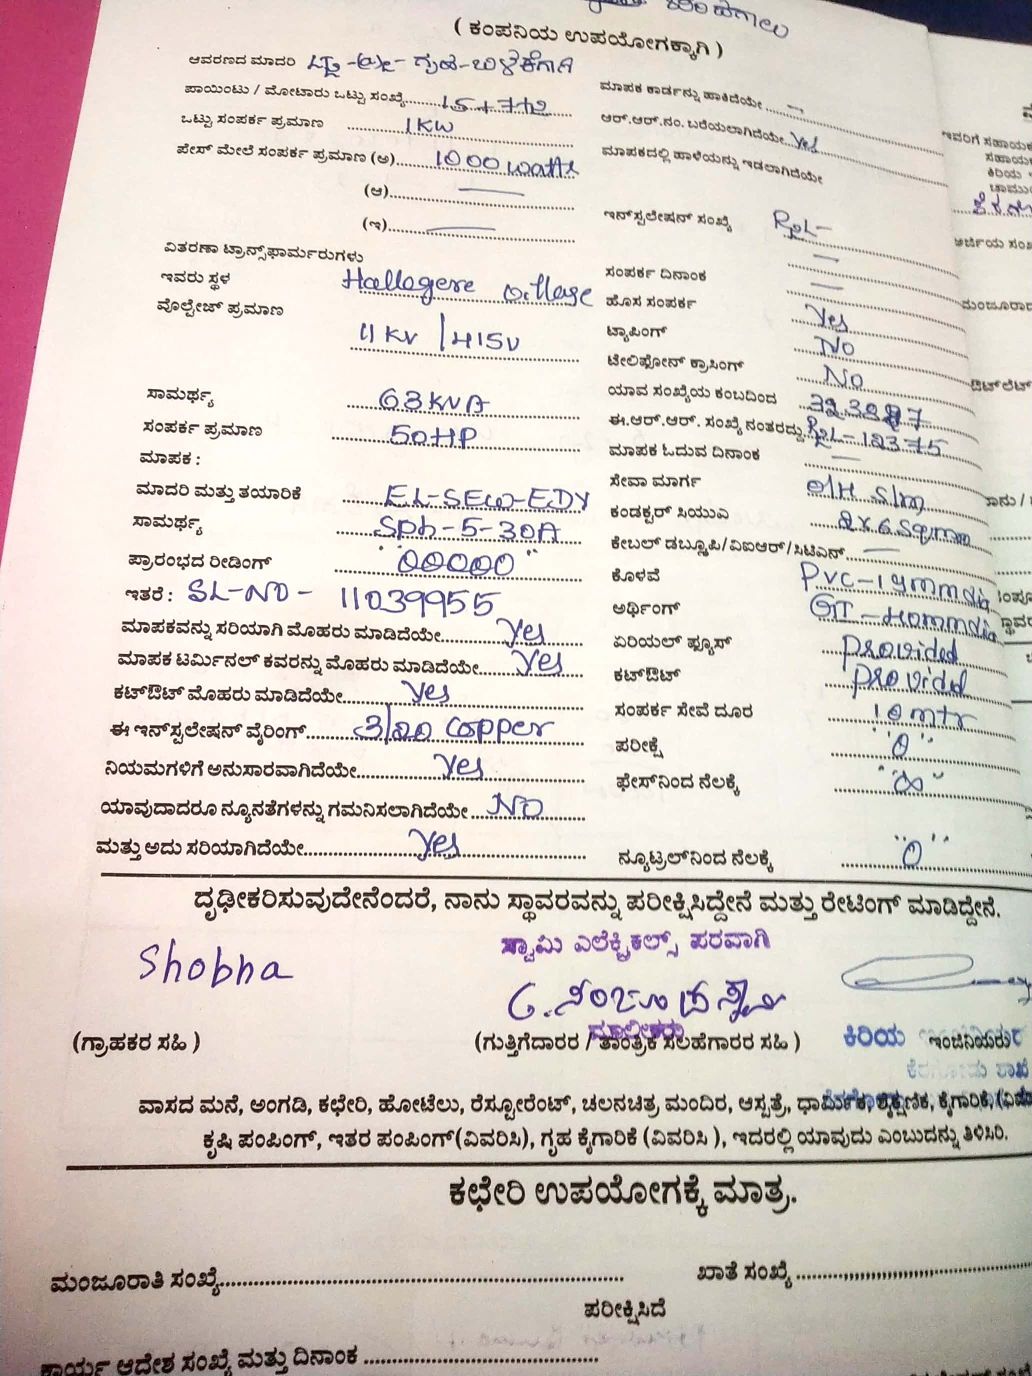 ( ಕಂಪನಿಯ ಉಪಯೋಗಕ್ಕಾಗಿ )
ಆವರಣದ ಮಾದರಿ
ಪಾಯಿಂಟು / ಮೋಟಾರು ಒಟ್ಟು ಸಂಖ್ಯೆ
ಒಟ್ಟು ಸಂಪರ್ಕ ಪ್ರಮಾಣ 1KW
ಪೇಸ್ ಮೇಲೆ ಸಂಪರ್ಕ ಪ್ರಮಾಣ (ಅ) 1000 watts
(ಆ)
(ಇ)
ವಿತರಣಾ ಟ್ರಾನ್ಸ್‌ಫಾರ್ಮರುಗಳು
ಇವರು ಸ್ಥಳ Hallegere village
ವೊಲ್ಟೇಜ್ ಪ್ರಮಾಣ
11KV / 415V
ಸಾಮರ್ಥ್ಯ 63KVA
ಸಂಪರ್ಕ ಪ್ರಮಾಣ 50HP
ಮಾಪಕ :
ಮಾದರಿ ಮತ್ತು ತಯಾರಿಕೆ EL-SEW-EDY
ಸಾಮರ್ಥ್ಯ Sph-5-30A
ಪ್ರಾರಂಭದ ರೀಡಿಂಗ್ "00000"
ಇತರೆ : SL-NO - 11039955
ಮಾಪಕವನ್ನು ಸರಿಯಾಗಿ ಮೊಹರು ಮಾಡಿದೆಯೇ Yes
ಮಾಪಕ ಟರ್ಮಿನಲ್ ಕವರನ್ನು ಮೊಹರು ಮಾಡಿದೆಯೇ Yes
ಕಟ್‌ಔಟ್ ಮೊಹರು ಮಾಡಿದೆಯೇ Yes
ಈ ಇನ್‌ಸ್ಪಲೇಷನ್ ವೈರಿಂಗ್ 3/20 Copper
ನಿಯಮಗಳಿಗೆ ಅನುಸಾರವಾಗಿದೆಯೇ Yes
ಯಾವುದಾದರೂ ನ್ಯೂನತೆಗಳನ್ನು ಗಮನಿಸಲಾಗಿದೆಯೇ NO
ಮತ್ತು ಅದು ಸರಿಯಾಗಿದೆಯೇ Yes
ಮಾಪಕ ಕಾರ್ಡನ್ನು ಹಾಕಿದೆಯೇ
ಆರ್.ಆರ್.ನಂ. ಬರೆಯಲಾಗಿದೆಯೇ Yes
ಮಾಪಕದಲ್ಲಿ ಹಾಳೆಯನ್ನು ಇಡಲಾಗಿದೆಯೇ
ಇನ್‌ಸ್ಪಲೇಷನ್ ಸಂಖ್ಯೆ
ಸಂಪರ್ಕ ದಿನಾಂಕ
ಹೊಸ ಸಂಪರ್ಕ Yes
ಟ್ಯಾಪಿಂಗ್ No
ಟೆಲಿಫೋನ್ ಕ್ರಾಸಿಂಗ್ No
ಯಾವ ಸಂಖ್ಯೆಯ ಕಂಬದಿಂದ
ಈ.ಆರ್.ಆರ್. ಸಂಖ್ಯೆ ನಂತರದ್ದು
ಮಾಪಕ ಓದುವ ದಿನಾಂಕ
ಸೇವಾ ಮಾರ್ಗ O/H S/m
ಕಂಡಕ್ಟರ್ ಸಿಯುಎ 2x6 Sqmm
ಕೇಬಲ್ ಡಬ್ಲ್ಯೂಪಿ/ವಿಐಆರ್/ಸಿಟಿಎನ್
ಕೊಳವೆ PVC-19mmdia
ಅರ್ಥಿಂಗ್ GI-40mmdia
ಏರಿಯಲ್ ಫ್ಯೂಸ್ Provided
ಕಟ್‌ಔಟ್ Provided
ಸಂಪರ್ಕ ಸೇವೆ ದೂರ 10mtr
ಪರೀಕ್ಷೆ "0"
ಫೇಸ್‌ನಿಂದ ನೆಲಕ್ಕೆ "∞"
ನ್ಯೂಟ್ರಲ್‌ನಿಂದ ನೆಲಕ್ಕೆ "0"
ದೃಢೀಕರಿಸುವುದೇನೆಂದರೆ, ನಾನು ಸ್ಥಾವರವನ್ನು ಪರೀಕ್ಷಿಸಿದ್ದೇನೆ ಮತ್ತು ರೇಟಿಂಗ್ ಮಾಡಿದ್ದೇನೆ.
Shobha
ಸ್ವಾಮಿ ಎಲೆಕ್ಟ್ರಿಕಲ್ಸ್ ಪರವಾಗಿ
ಮಾಲೀಕರು
(ಗ್ರಾಹಕರ ಸಹಿ )
(ಗುತ್ತಿಗೆದಾರರ / ತಾಂತ್ರಿಕ ಸಲಹೆಗಾರರ ಸಹಿ )
ಕಿರಿಯ ಇಂಜಿನಿಯರು
ವಾಸದ ಮನೆ, ಅಂಗಡಿ, ಕಛೇರಿ, ಹೋಟೆಲು, ರೆಸ್ಟೋರೆಂಟ್, ಚಲನಚಿತ್ರ ಮಂದಿರ, ಆಸ್ಪತ್ರೆ, ಧಾರ್ಮಿಕ, ಶೈಕ್ಷಣಿಕ, ಕೈಗಾರಿಕೆ,
ಕೃಷಿ ಪಂಪಿಂಗ್, ಇತರ ಪಂಪಿಂಗ್(ವಿವರಿಸಿ), ಗೃಹ ಕೈಗಾರಿಕೆ (ವಿವರಿಸಿ ), ಇದರಲ್ಲಿ ಯಾವುದು ಎಂಬುದನ್ನು ತಿಳಿಸಿರಿ.
ಕಛೇರಿ ಉಪಯೋಗಕ್ಕೆ ಮಾತ್ರ.
ಮಂಜೂರಾತಿ ಸಂಖ್ಯೆ
ಖಾತೆ ಸಂಖ್ಯೆ
ಪರೀಕ್ಷಿಸಿದೆ
ಕಾರ್ಯ ಆದೇಶ ಸಂಖ್ಯೆ ಮತ್ತು ದಿನಾಂಕ